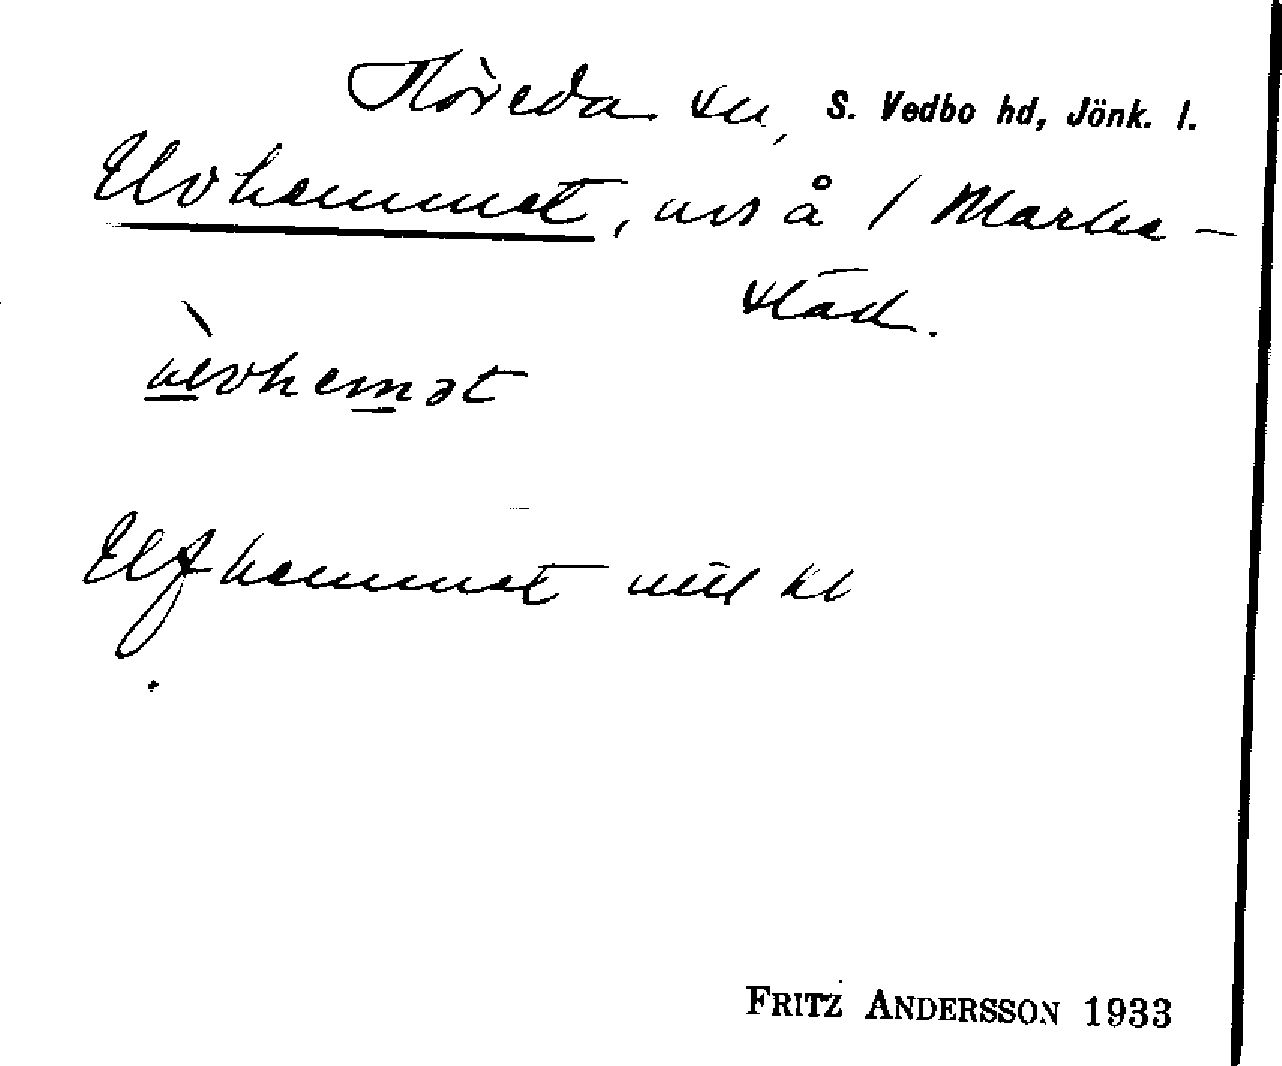 Höreda sn, S. Vedbo hd, Jönk. l.
Ulvhemmet, urs å 1 Marke-
stad.
ulvhemət
Ulfhemmet
FRITZ ANDERSSON 1933